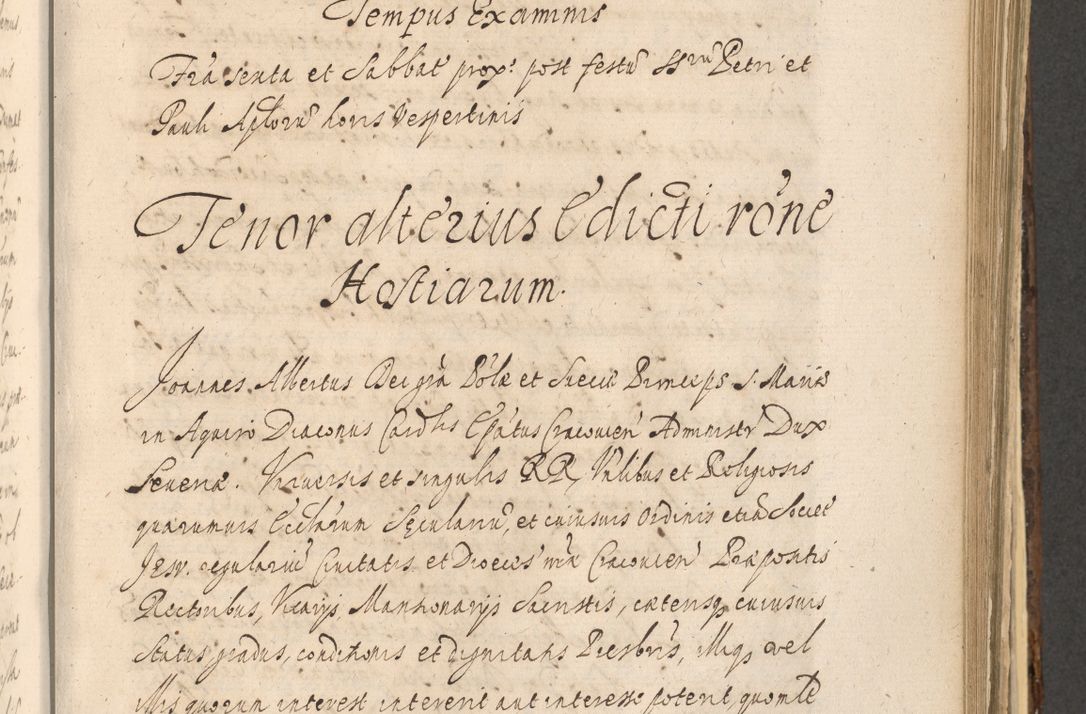 Tempus Examinis
Fria sexta et Sabbat prox: post festũ SSrũ Petri et
Pauli Aplorũ horis Vespertinis
Tenor alterius Edicti rõne
Hostiarum.
Joannes Albertus Dei grã Polæ et Sueciæ Princeps S. Mariæ
in Aquiro Diaconus Cardlis Epãtus Cracovien Administr Dux
Severiæ. Universis et singulis RR, Vnlibus et Religiosis
quarumuis Ecclãrum Sęcularũ, et cuiusuis Ordinis etiã Societ
Jesv. regulariũ Ciuitatis et Dioeces nrã Cracouien Præpositis
Rectoribus, Vicarijs, Mansionarijs Sacristis, cæterisq cuiusuis
Status, gradus, conditionis et dignitatis Presbris, illisq vel
illis quorum interest intererit aut interesse poterit quomlt